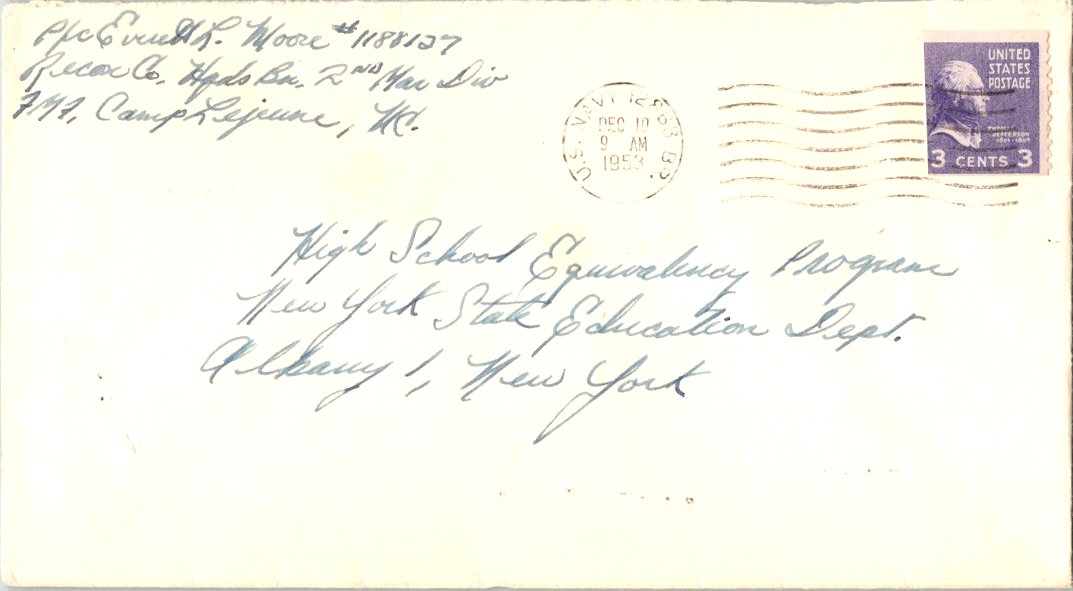 Pfc Everett L. Moore #1188127
Recon Co. Hqds Bn. 2ND Mar Div
FMF, Camp Lejeune, NC.
U.S. NAVY 12868 Br.
DEC 10
9 AM
1953
UNITED
STATES
POSTAGE
THOMAS
JEFFERSON
1801-1809
3 CENTS 3
High School Equivalency Program
New York State Education Dept.
Albany 1, New York